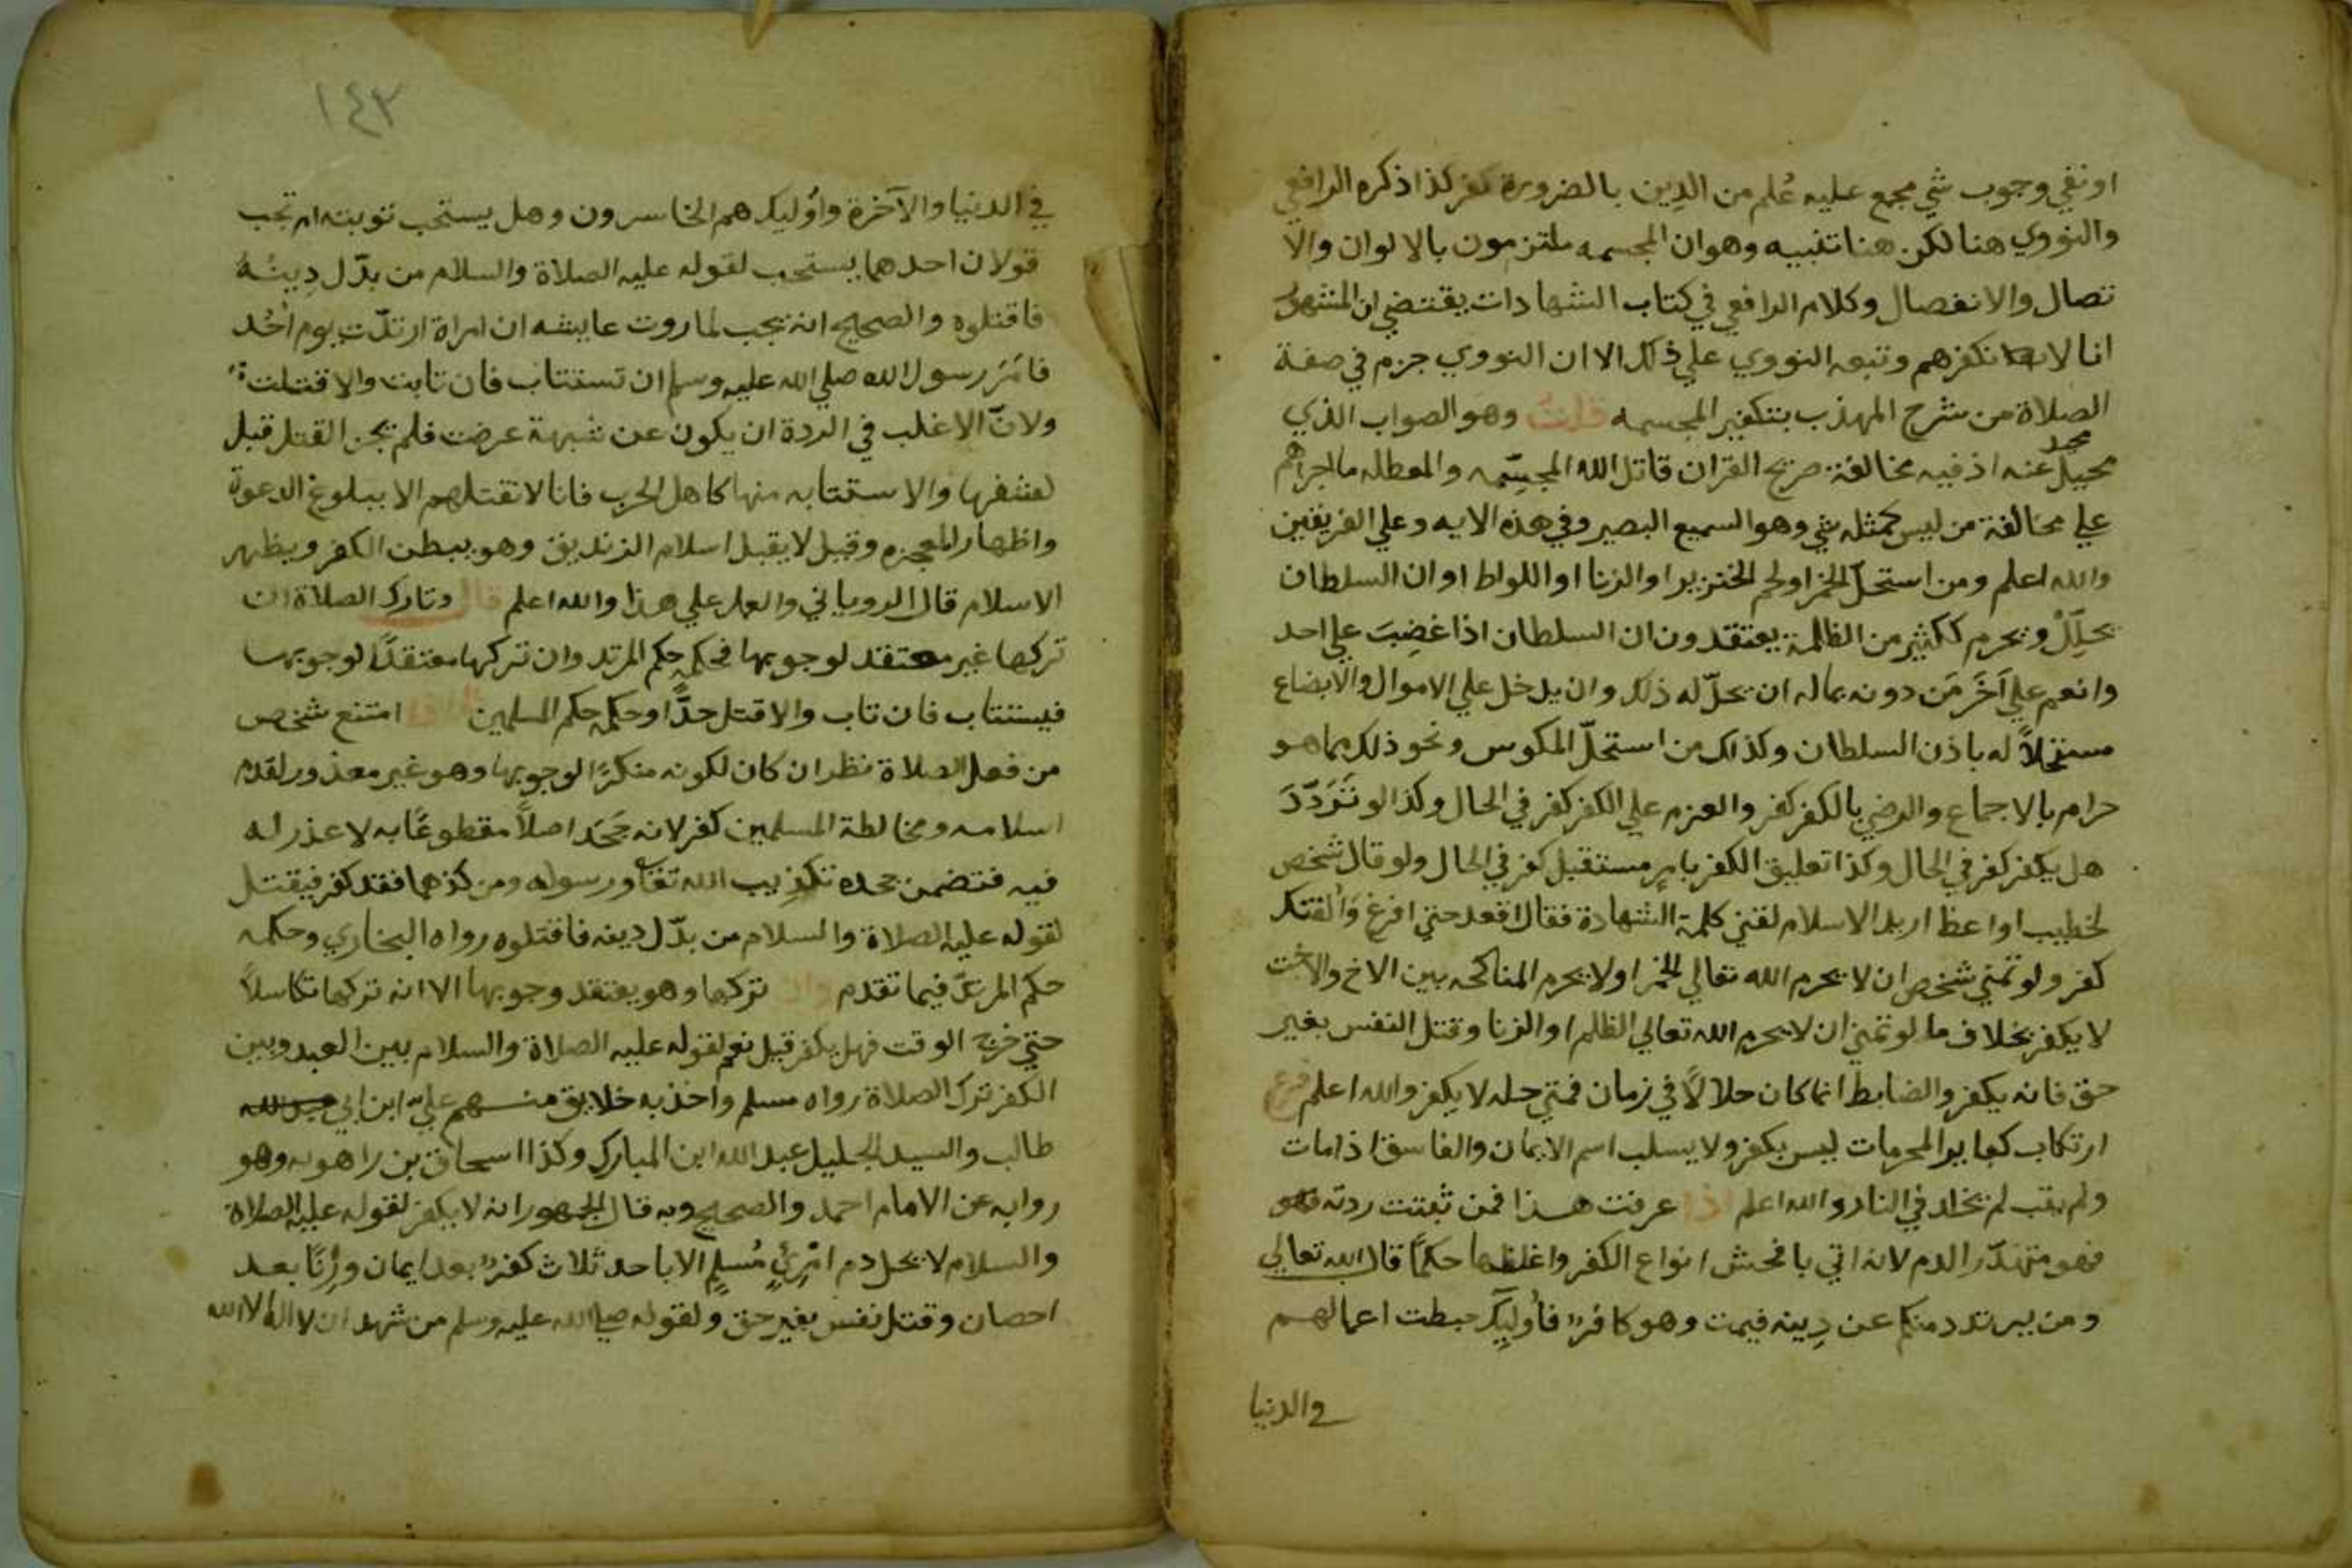 او نفي وجوب شي مجمع عليه عُلم من الدِين بالضرورة كفر كذا ذكره الرافعي
والنووي هنا لكن هنا تنبيه وهو ان المجسمه ملتزمون بالالوان والا
تصال والانفصال وكلام الرافعي في كتاب الشهادات يقتضي ان المشهور
انا لا نكفرهم وتبعه النووي علي ذلك الا ان النووي جزم في صفة
الصلاة من شرح المهذب بتكفير المجسمه قلتُ وهو الصواب الذي
لا محيد عنه اذ فيه مخالفة صريح القران قاتل الله المجسّمه والمعطله ما اجراهم
علي مخالفة من ليس كمثله شي وهو السميع البصير وفي هذه الايه رد علي الفريقين
والله اعلم ومن استحلّ الخمر او لحم الخنزير او الزنا او اللواط او ان السلطان
يحلّلُ ويحرم ككثير من الظلمة يعتقدون ان السلطان اذا غضِبَ علي احد
وانعم علي آخَر مَن دونه بماله ان يحلّ له ذلك وان يدخل علي الاموال والابضاع
مستحلاً له باذن السلطان وكذلك من استحلّ المكوس ونحو ذلك مما هو
حرام بالاجماع والرضي بالكفر كفر والعزم علي الكفر كفر في الحال وكذا لو تَرَدّدَ
هل يكفر كفر في الحال وكذا تعليق الكفر بامرٍ مستقبل كفر في الحال ولو قال شخص
لخطيب او اعظ اريد الاسلام لقني كلمة الشهادة فقال اقعد حتي افرغ وَالقنك
كفر ولو تمني شخص ان لا يحرم الله تعالي الخمر او لا يحرم المناكحه بين الاخ والاخت
لا يكفر بخلاف ما لو تمني ان لا يحرم الله تعالي الظلم او الزنا وقتل النفس بغير
حق فانه يكفر والضابط انما كان حلالاً في زمان فتمني حله لا يكفر والله اعلم فرع
ارتكاب كبايرالمحرمات ليس بكفر ولا يسلب اسم الايمان والفاسق اذا مات
ولم يتب لم يخلد في النار والله اعلم اذا عرفت هذا فمن ثبتت ردته
فهو متهدّر الدم لانه اتي بافحش انواع الكفر واغلظها حكماً قال الله تعالي
ومن يرتدد منكم عن دِينه فيمت وهو كافرٌ فأوليك حبطت اعمالهم
في الدنيا
١٤٣
في الدنيا والآخرة واُوليك هم الخاسرون وهل يستحب توبته ام تجب
قولان احدهما يستحب لقوله عليه الصلاة والسلام من بدّل دِينهُ
فاقتلوه والصحيح انه يجب لما روت عايشه ان امراة ارتدّت يوم اُحُد
فامَرَ رسول الله صلي الله عليه وسلم ان تستتاب فان تابت والا قتلت
ولانّ الاغلب في الردة ان يكون عن شبهة عرضت فلم يجز القتل قبل
لعشفها والاستتابه منها كاهل الحرب فانا لا نقتلهم الا ببلوغ الدعوة
واظهار المعجزه وقيل لا يقبل اسلام الزنديق وهو يبطن الكفر ويظهر
الاسلام قال الروياني والعمل علي هذا والله اعلم قال وتارك الصلاة ان
تركها غير معتقد لوجوبها فحكمه حكم المرتد وان تركها معتقدًا لوجوبها
فيستتاب فان تاب والا قتل حدًّا وحكمه حكم المسلمين اذا امتنع شخص
من فعل الصلاة نظر ان كان لكونه منكرًا لوجوبها وهو غير معذور لقدم
اسلامه ومخالطة المسلمين كفر لانه جَحَد اصلاً مقطوعًا به لا عذر له
فيه فتضمن جحده تكذيب الله تعالي ورسوله ومن كذبهما فقد كفر فيقتل
لقوله عليه الصلاة والسلام من بدّل دينه فاقتلوه رواه البخاري وحكمه
حكم المرتدّ فيما تقدم وان تركها وهو يعتقد وجوبها الا انه تركها تكاسلاً
حتي خرج الوقت فهل يكفر قيل نعم لقوله عليه الصلاة والسلام بين العبد وبين
الكفر ترك الصلاة رواه مسلم واخذ به خلايق منهم عليّ ابن ابي
طالب والسيد الجليل عبد الله ابن المبارك وكذا اسحاق بن راهويه وهو
روايه عن الامام احمد والصحيح وبه قال الجمهور انه لا يكفر لقوله عليه الصلاة
والسلام لا يحل دم امْرئٍ مُسلمٍ الا باحد ثلاث كفرٌ بعد ايمان وزِنًا بعد
احصان وقتل نفس بغير حق ولقوله صلي الله عليه وسلم من شهد ان لا اله الا الله